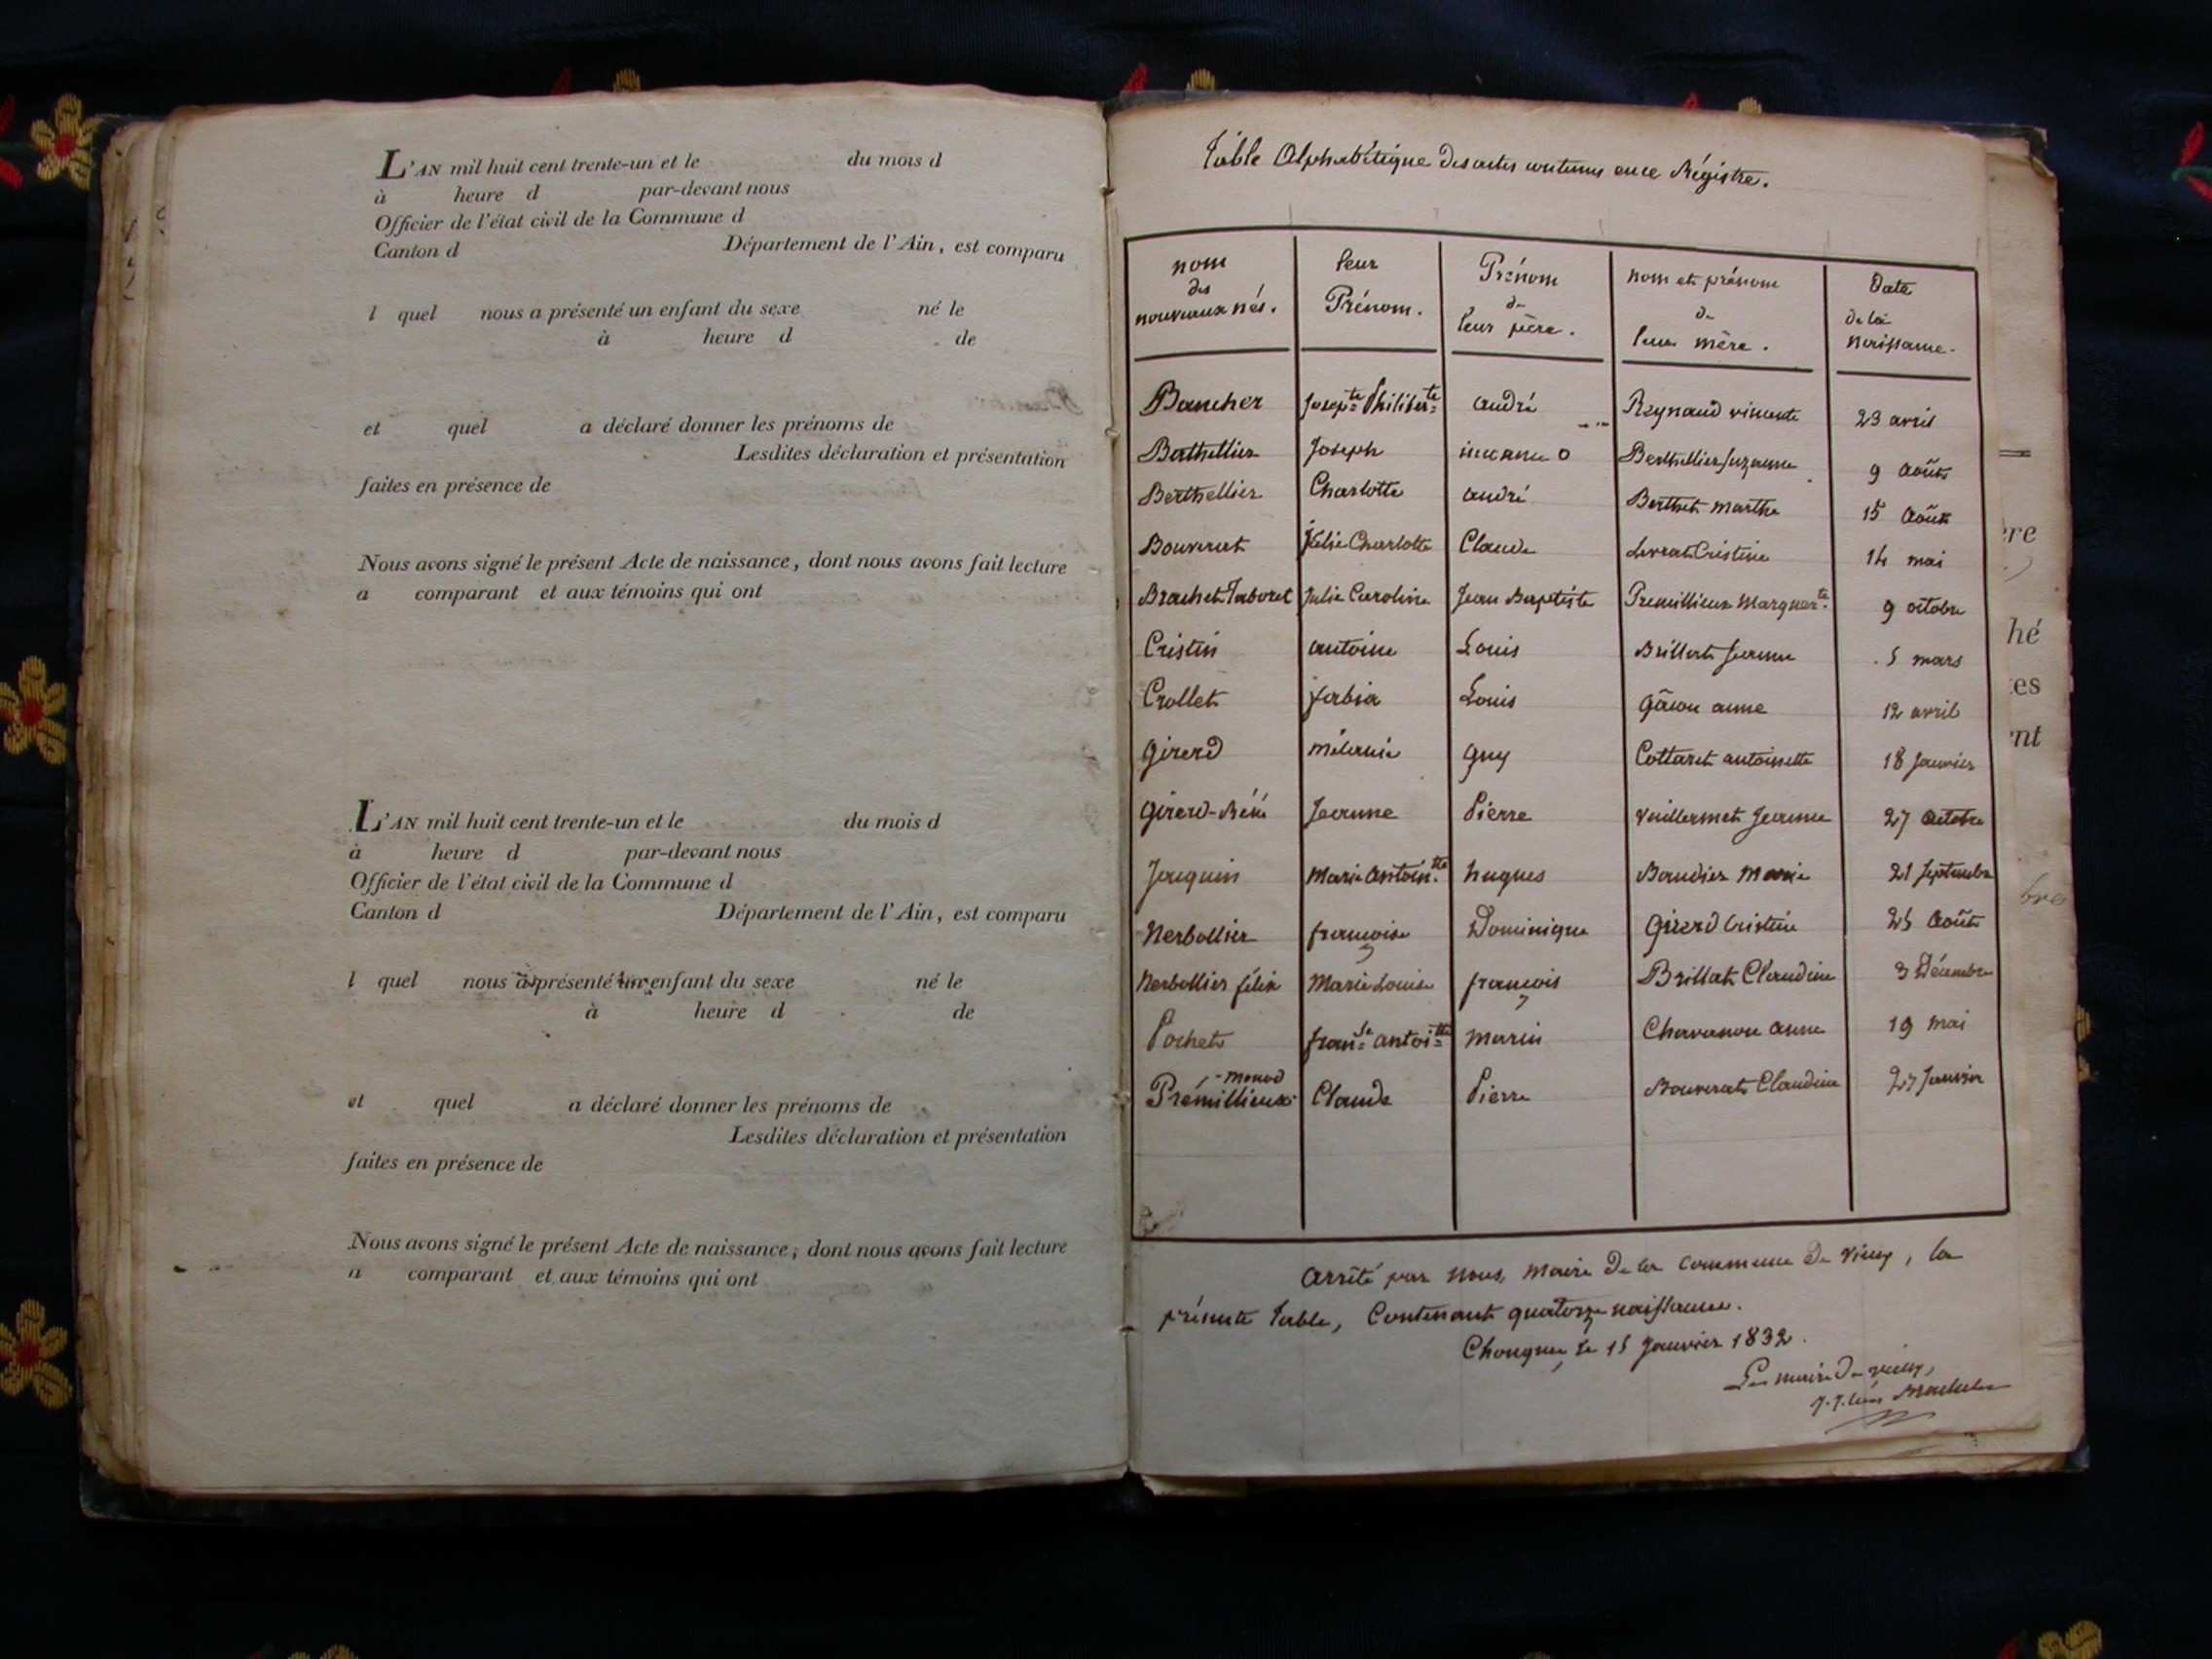 L'AN mil huit cent trente-un et le du mois d
à heure d par-devant nous
Officier de l'état civil de la Commune d
Canton d Département de l'Ain, est comparu
l quel nous a présenté un enfant du sexe né le
à heure d de
et quel a déclaré donner les prénoms de
Lesdites déclaration et présentation
faites en présence de
Nous avons signé le présent Acte de naissance, dont nous avons fait lecture
a comparant et aux témoins qui ont
L'AN mil huit cent trente-un et le du mois d
à heure d par-devant nous
Officier de l'état civil de la Commune d
Canton d Département de l'Ain, est comparu
l quel nous a présenté un enfant du sexe né le
à heure d de
et quel a déclaré donner les prénoms de
Lesdites déclaration et présentation
faites en présence de
Nous avons signé le présent Acte de naissance, dont nous avons fait lecture
a comparant et aux témoins qui ont
Table Alphabétique des actes contenus en ce Régistre.
nom des nouveaux nés. leur Prénom. Prénom de leur père. nom et prénom de leur mère. Date de la naissance.
Baucher Josepte Philiberte André Reynaud vincente 23 avril
Berthellier Joseph inconnu Berthellier Suzanne 9 Août
Berthellier Charlotte André Berthet Marthe 15 Août
Bouverat Julie Charlotte Claude Levrat Cristine 14 mai
Brachet Taboret Julie Caroline Jean Baptiste Premillieux Marguerte 9 octobre
Cristin antoine Louis Brillat Jeanne 5 mars
Crollet fabia Louis anne 12 avril
Girerd mélanie Guy Cottaret antoinette 18 Janvier
Girerd-Réné Jeanne Pierre Vuillermet Jeanne 27 octobre
Jacquin Marie Antointte hugues Baudier Marie 21 Septembre
Nerbollier françoise Dominique Girerd Cristine 25 Août
Nerbollier félix Marie Louise françois Brillat Claudine 3 Décembre
Pochet franse antoitte Marin Chavanon Anne 19 mai
Prémillieux-monod Claude Pierre Bouverat Claudine 27 Janvier
Arrêté par nous, Maire De la commune De Vieu, la
présente table, Contenant quatorze naissance.
Chongne, le 15 Janvier 1832.
Le maire De vieu,
ère
hé
tes
ent
bre